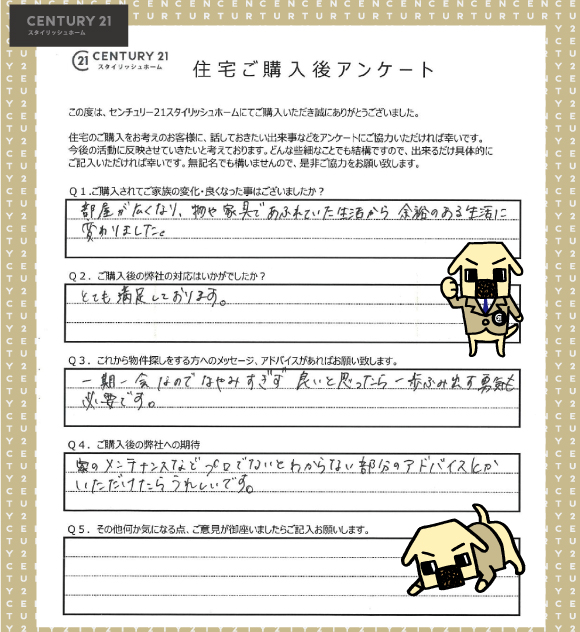 CENTURY 21
スタイリッシュホーム
CENTURY 21
スタイリッシュホーム
住宅ご購入後アンケート
この度は、センチュリー21スタイリッシュホームにてご購入いただき誠にありがとうございました。
住宅のご購入をお考えのお客様に、話しておきたい出来事などをアンケートにご協力いただければ幸いです。
今後の活動に反映させていきたいと考えております。どんな些細なことでも結構ですので、出来るだけ具体的に
ご記入いただければ幸いです。無記名でも構いませんので、是非ご協力をお願い致します。
Q1.ご購入されてご家族の変化・良くなった事はございましたか？
部屋が広くなり、物や家具であふれていた生活から余裕のある生活に
変わりました。
Q2．ご購入後の弊社の対応はいかがでしたか？
とても満足しております。
Q3．これから物件探しをする方へのメッセージ、アドバイスがあればお願い致します。
一期一会なのでなやみすぎず良いと思ったら一歩ふみ出す勇気も
必要です。
Q4．ご購入後の弊社への期待
家のメンテナンスなどプロでないとわからない部分のアドバイスとか
いただけたらうれしいです。
Q5．その他何か気になる点、ご意見が御座いましたらご記入お願いします。